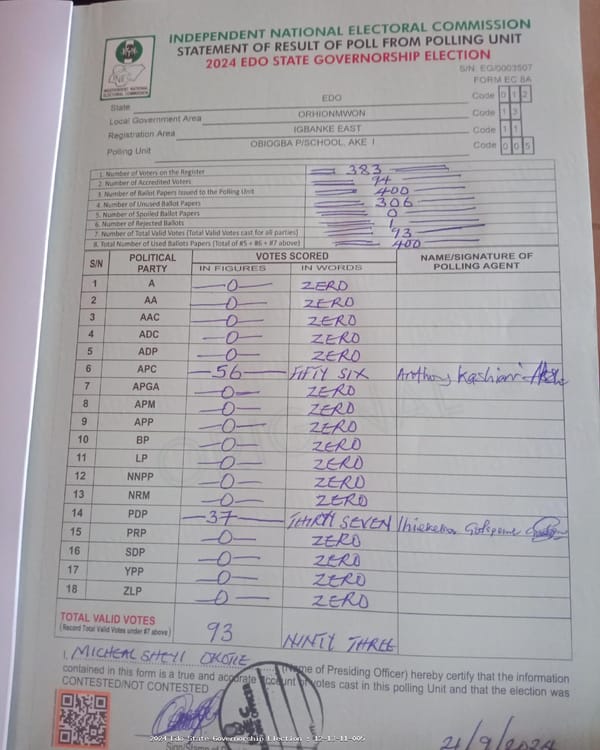 INDEPENDENT NATIONAL ELECTORAL COMMISSION
STATEMENT OF RESULT OF POLL FROM POLLING UNIT
2024 EDO STATE GOVERNORSHIP ELECTION
S/N: EG/0003507
FORM EC 8A
INDEPENDENT NATIONAL ELECTORAL COMMISSION
State EDO Code 0 1 2
Local Government Area ORHIONMWON Code 1 3
Registration Area IGBANKE EAST Code 1 1
Polling Unit OBIOGBA P/SCHOOL, AKE I Code 0 0 5
1. Number of Voters on the Register 383
2. Number of Accredited Voters 94
3. Number of Ballot Papers Issued to the Polling Unit 400
4. Number of Unused Ballot Papers 306
5. Number of Spoiled Ballot Papers 0
6. Number of Rejected Ballots 1
7. Number of Total Valid Votes (Total Valid Votes cast for all parties) 93
8. Total Number of Used Ballots Papers (Total of #5 + #6 + #7 above) 400
S/N POLITICAL PARTY VOTES SCORED NAME/SIGNATURE OF POLLING AGENT
IN FIGURES IN WORDS
1 A 0 ZERO
2 AA 0 ZERO
3 AAC 0 ZERO
4 ADC 0 ZERO
5 ADP 0 ZERO
6 APC 56 FIFTY SIX Anthony Kashiari
7 APGA 0 ZERO
8 APM 0 ZERO
9 APP 0 ZERO
10 BP 0 ZERO
11 LP 0 ZERO
12 NNPP 0 ZERO
13 NRM 0 ZERO
14 PDP 37 THRTY SEVEN
15 PRP 0 ZERO
16 SDP 0 ZERO
17 YPP 0 ZERO
18 ZLP 0 ZERO
TOTAL VALID VOTES 93 NINTY THREE
(Record Total Valid Votes under #7 above)
I, MICHEAL (Name of Presiding Officer) hereby certify that the information
contained in this form is a true and accurate account of votes cast in this polling Unit and that the election was
CONTESTED/NOT CONTESTED
21/9/2024
2024 Edo State Governorship Election - 12-13-11-005